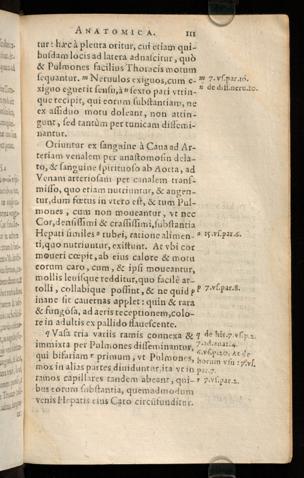 ANATOMICA. 111
tur: hæc à pleura oritur, cui etiam qui-
busdam locis ad latera adnascitur, quò
& Pulmones facilius Thoracis motum
sequantur. m Neruulos exiguos, cum e-
xiguo eguerit sensu, à n sexto pari vtrin-
que recipit, qui eorum substantiam, ne
ex assiduo motu doleant, non attin-
gunt, sed tantùm per tunicam dissemi-
nantur.
Oriuntur ex sanguine à Caua ad Ar-
teriam venalem per anastomosin dela-
to, & sanguine spirituoso ab Aorta, ad
Venam arteriosam per canalem trans-
misso, quo etiam nutriuntur, & augen-
tur, dum fœtus in vtero est, & tum Pul-
mones, cum non moueantur, vt nec
Cor, densissimi & crassissimi, substantia
Hepati similes o rubei, ratione alimen-
ti, quo nutriuntur, existunt. At vbi cor
moueri cœpit, ab eius calore & motu
eorum caro, cum, & ipsi moueantur,
mollis leuisque redditur, quo facilè at-
tolli, collabique possint, & ne quid p
inane sit cauernas applet: quin & rara
& fungosa, ad aeris receptionem, colo-
re in adultis ex pallido flauescente.
q Vasa tria variis ramis connexa &
immixta per Pulmones disseminantur,
qui bifariam r primum, vt Pulmones,
mox in alias partes diuiduntur, ita vt in
ramos capillares tandem abeant, qui-
bus eorum substantia, quemadmodum
venis Hepatis eius Caro circūfunditur.
m 7. vs. par. 16.
n de diss. neru. 10.
o 15. vs. par. 6.
p 7. vs. par. 8.
q de his. 7. vs. p. 2.
par. 7.
r 7. vs. par. 2.